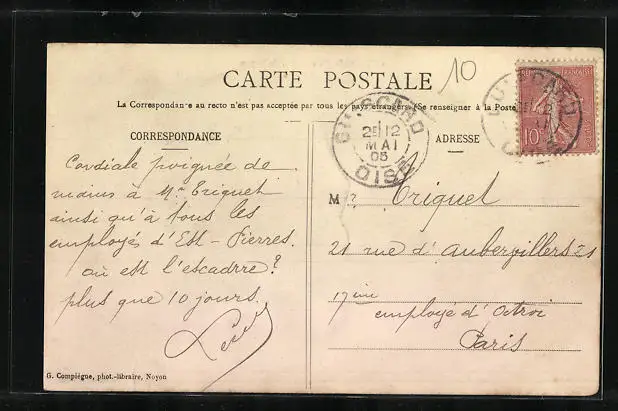 10
CARTE POSTALE
La Correspondance au recto n'est pas acceptée par tous les pays étrangers. (Se renseigner à la Poste)
CORRESPONDANCE
ADRESSE
GUISCARD
12
MAI
05
OISE
10c
Cordiale poignée de
mains à Mr Triquet
ainsi qu'à tous les
employés d'Est-Pierres.
où est l'escadre?
plus que 10 jours.
Mr Triquet
21 rue d'Aubervilliers 21
17ème
employé d'Octroi
Paris
G. Compiègne, phot.-libraire, Noyon